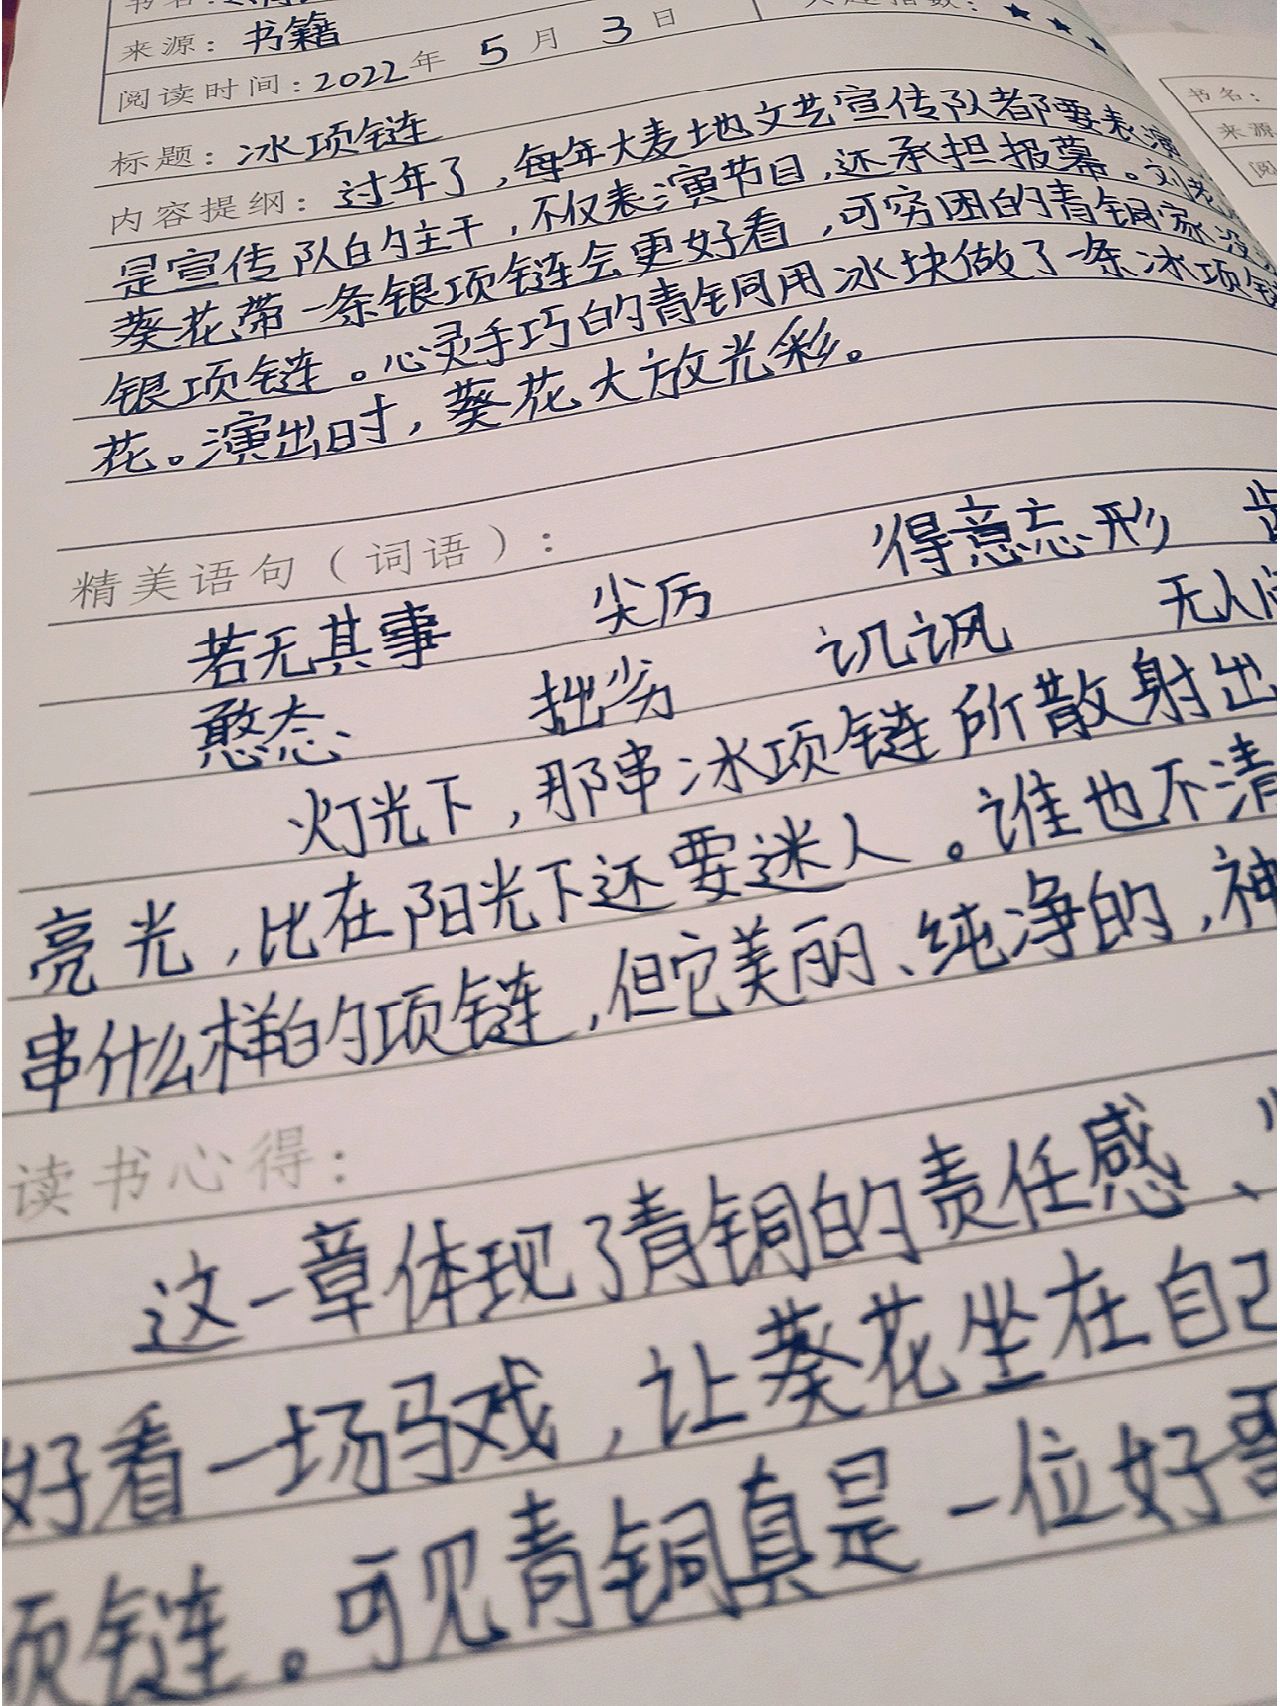 书名：
来源：书籍
阅读时间：2022年5月3日
标题：冰项链
内容提纲：过年了，每年大麦地文艺宣传队都要表演
是宣传队的主干，不仅表演节目，还承担报幕。刘老
葵花带一条银项链会更好看，可穷困的青铜家没
银项链。心灵手巧的青铜用冰块做了一条冰项链
花。演出时，葵花大放光彩。
精美语句（词语）：
得意忘形
若无其事 尖厉
憨态 拙劣 讥讽 无人
灯光下，那串冰项链所散射出
亮光，比在阳光下还要迷人。谁也不清
串什么样的项链，但它美丽、纯净的，神
读书心得：
这一章体现了青铜的责任感、
好看一场马戏，让葵花坐在自己
项链。可见青铜真是一位好哥
书名：
来源
阅